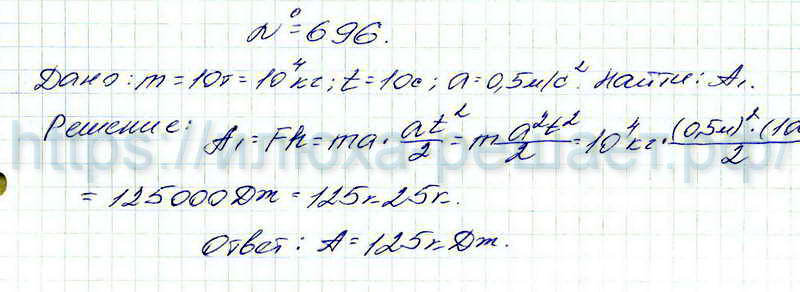 № 696.
Дано: m = 10т = 10⁴кг; t = 10с; a = 0,5м/с². Найти: A₁.
Решение: A₁ = Fh = ma · at²/2 = m a²t²/2 = 10⁴кг · (0,5м)² · (10/2
= 125000Дж = 125к25к.
Ответ: A = 125кДж.